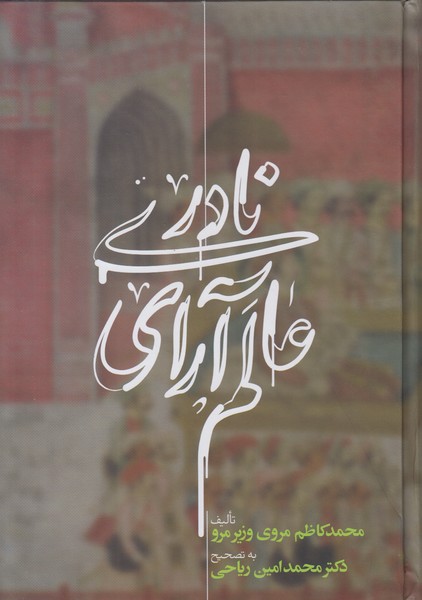 عالم آرای
نادری
تألیف
محمدکاظم مروی وزیر مرو
به تصحیح
دکتر محمدامین ریاحی